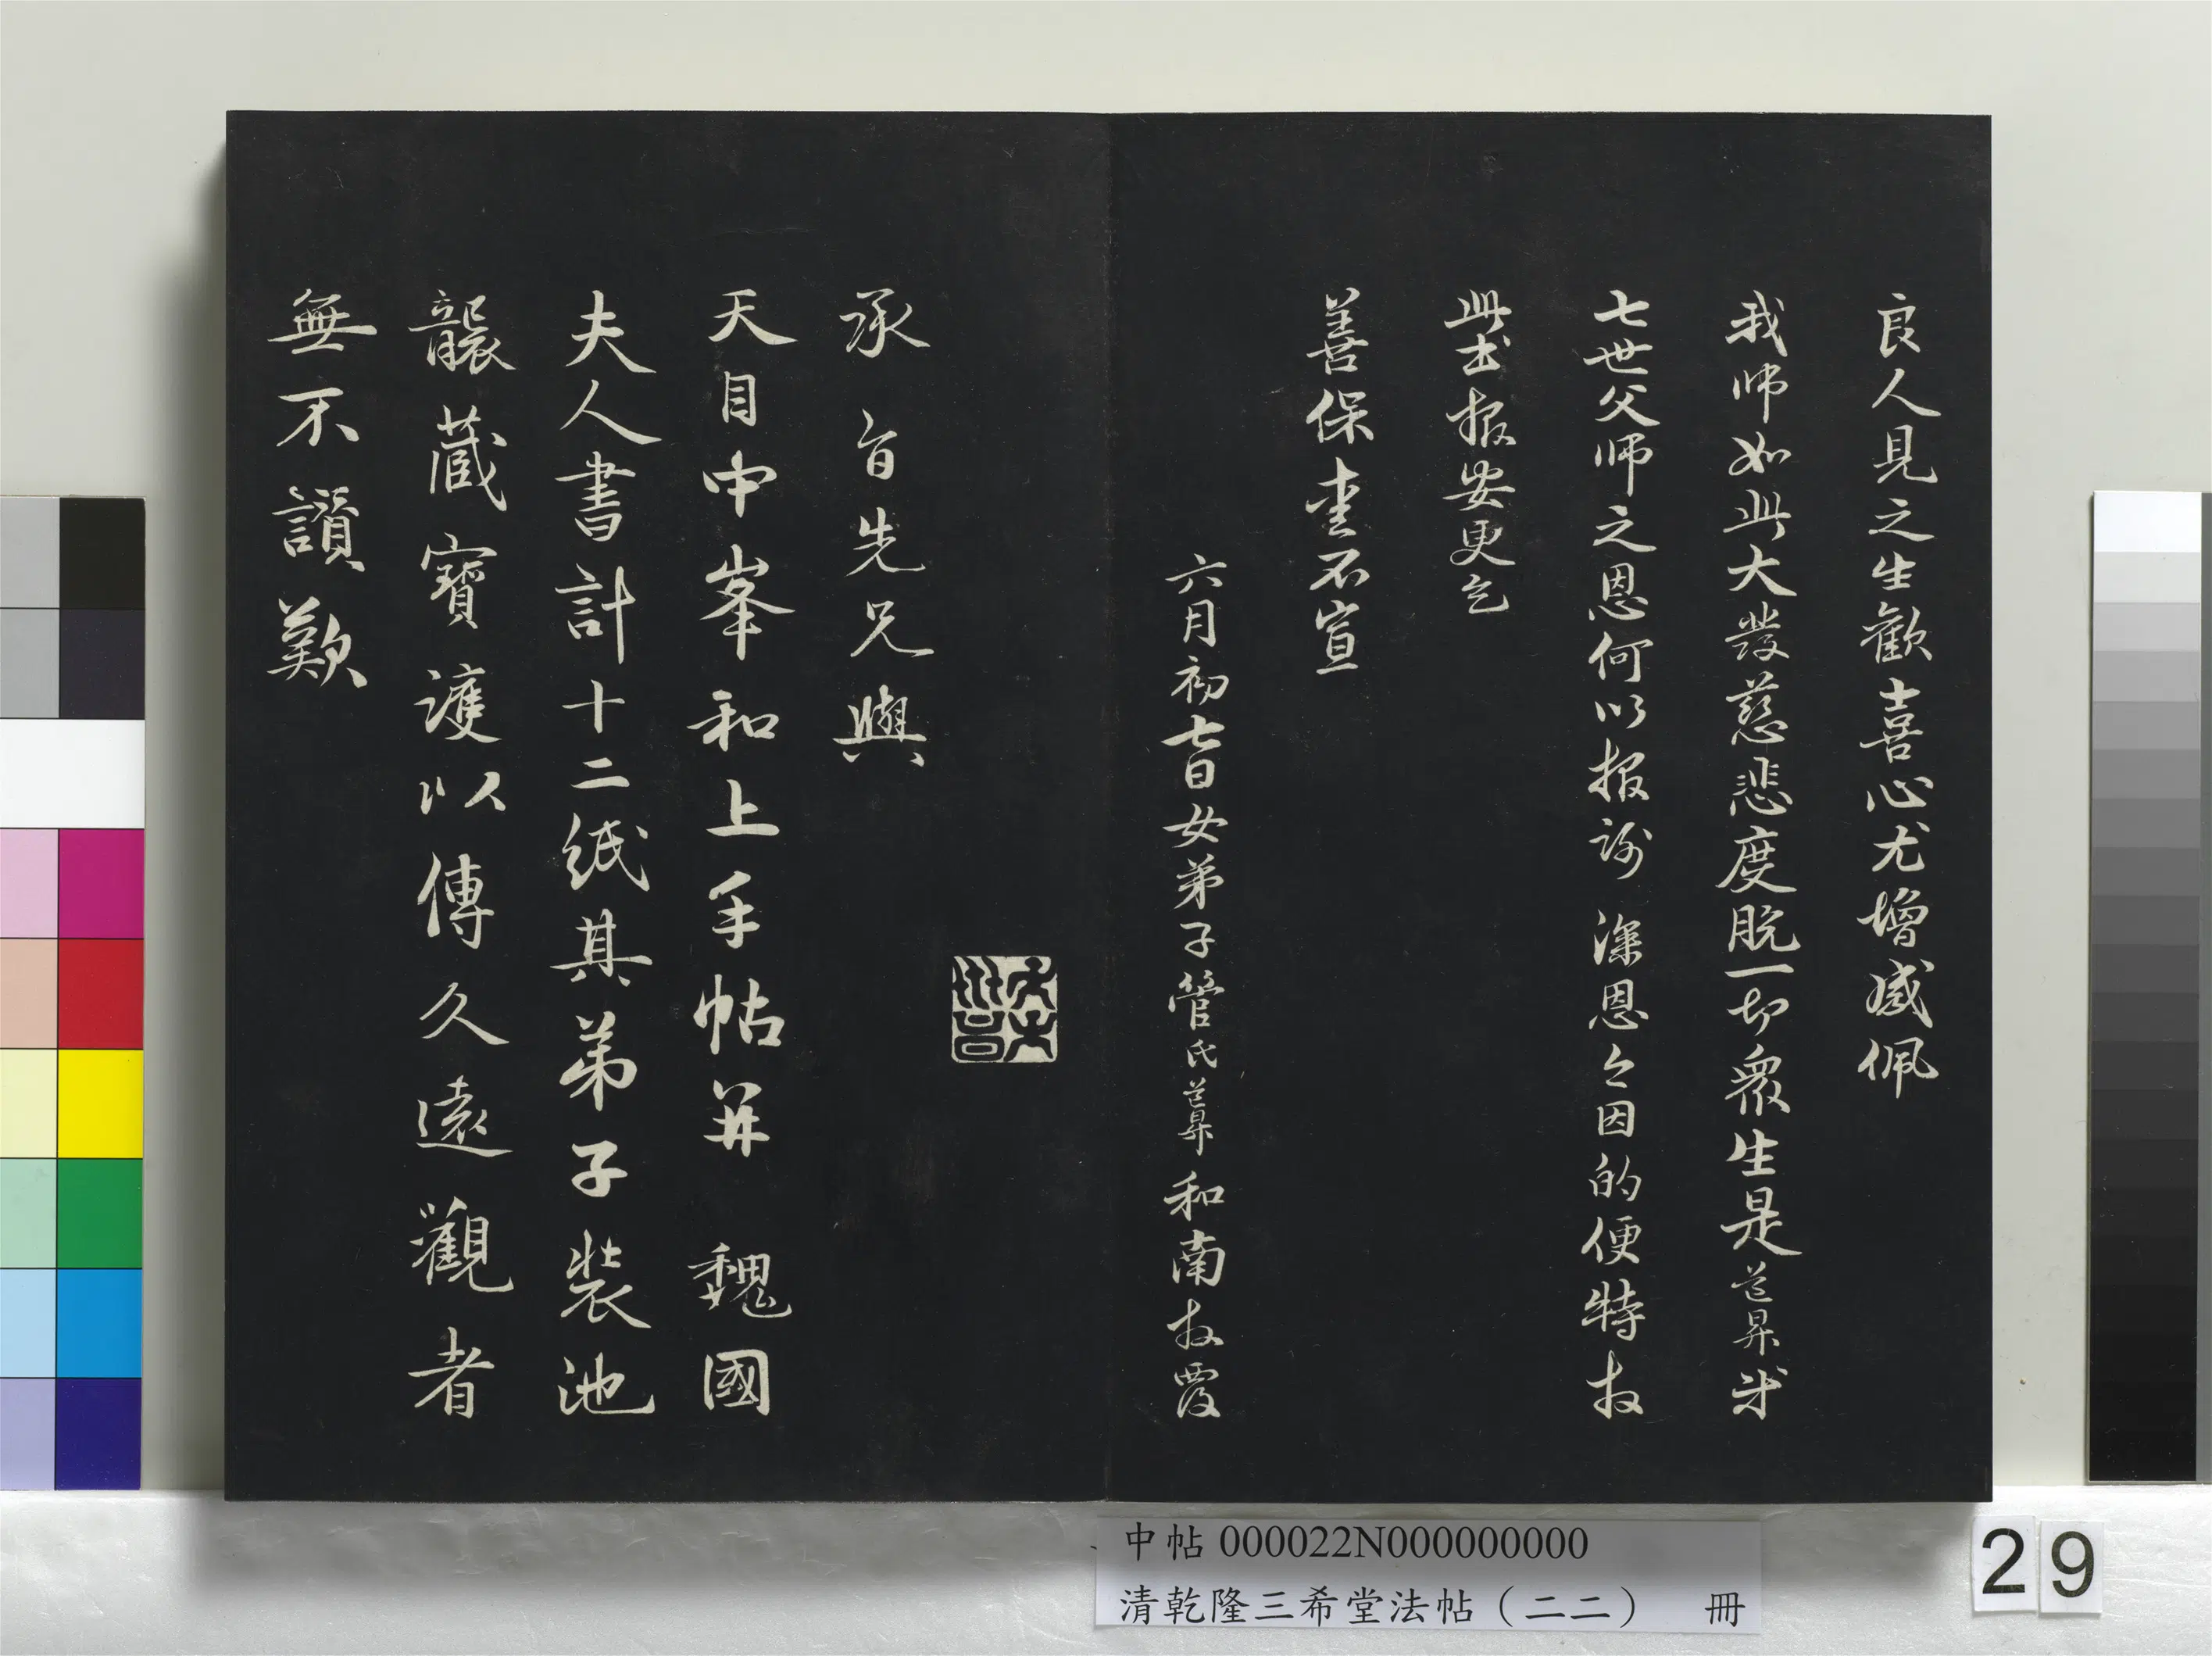 良人見之生歡喜心尤增感佩
我師如此大發慈悲度脱一切衆生是道昇成
七世父師之恩何以報謝深恩今因的便特奉
此書報安更乞
善保重不宣
六月初七日女弟子管氏道昇和南拜覆
承旨先兄與
天目中峯和上手帖并魏國
夫人書計十二紙其弟子裝池
襲藏寶護以傳久遠觀者
無不讚歎
中帖 000022N000000000
清乾隆三希堂法帖（二二） 冊
29